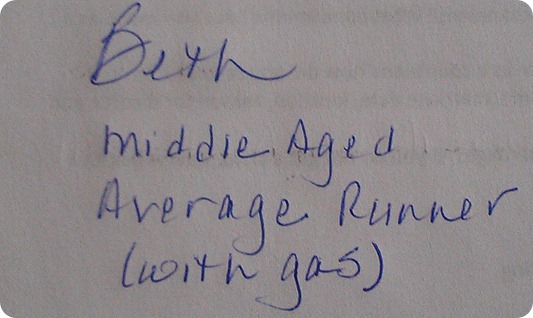 Beth
Middle Aged
Average Runner
(with gas)